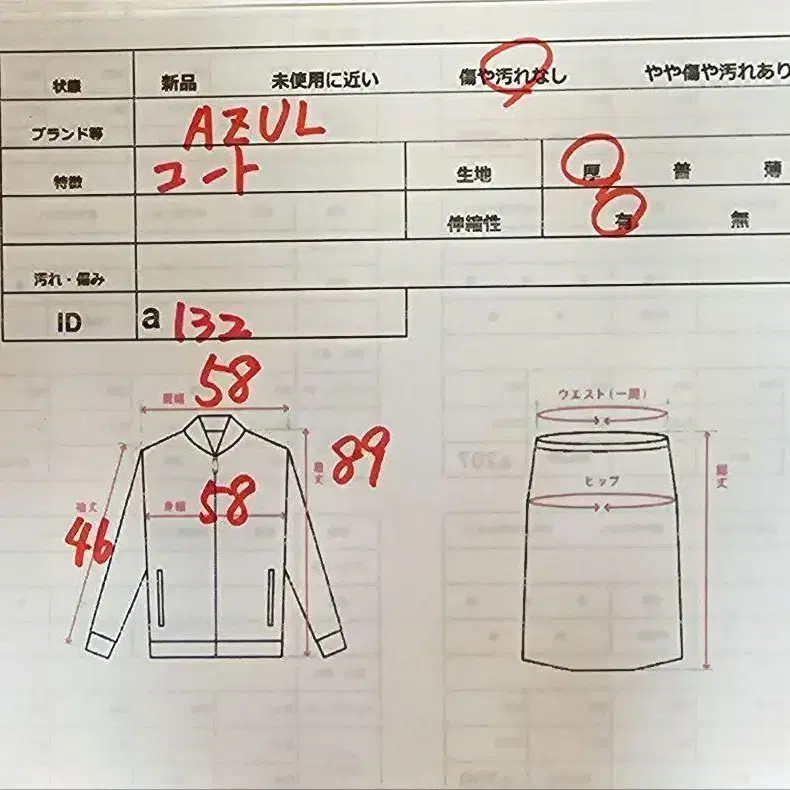 状態 新品 未使用に近い 傷や汚れなし やや傷や汚れあり
ブランド等 AZUL
特徴 コート 生地 厚 普 薄
伸縮性 有 無
汚れ・傷み
ID a 132
58
肩幅 ウエスト(一周)
着丈 89
ヒップ 総丈
袖丈 身幅 58
46